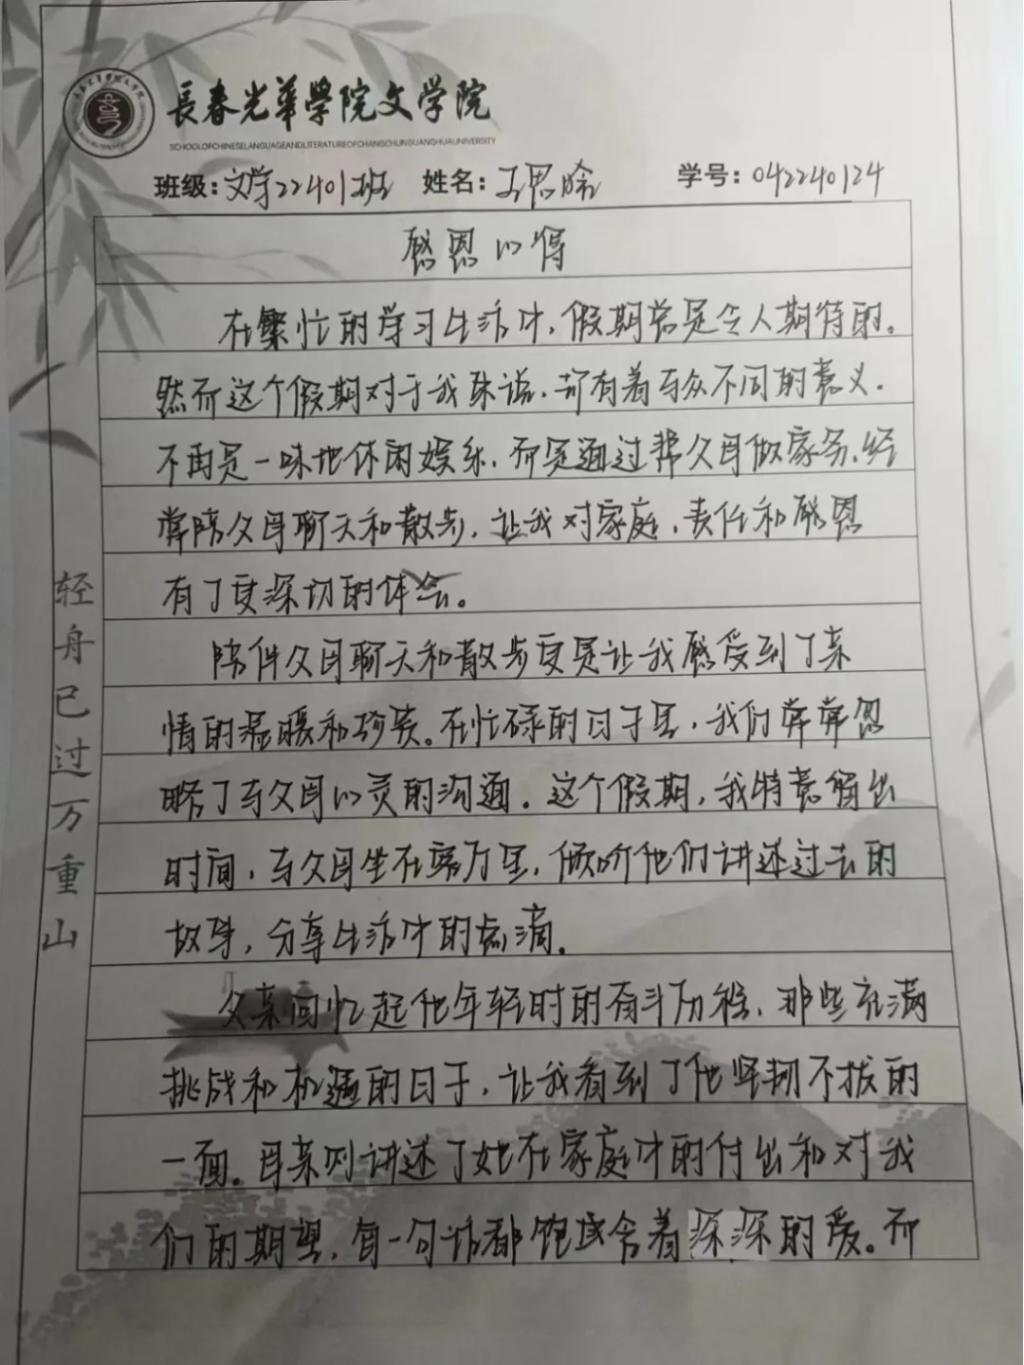 長春光華學院文学院
SCHOOLOFCHINESELANGUAGEANDLITERATUREOFCHANGCHUNGUANGHUAUNIVERSITY
班级:文学22401班 姓名:王思晗 学号:042240124
感恩心得
在繁忙的学习生活中，假期总是令人期待的。
然而这个假期对于我来说，却有着与众不同的意义.
不再是一味地休闲娱乐，而是通过帮父母做家务、经
常陪父母聊天和散步，让我对家庭、责任和感恩
有了更深切的体会。
陪伴父母聊天和散步更是让我感受到了亲
情的温暖和珍贵。在忙碌的日子里，我们常常忽
略了与父母心灵的沟通。这个假期，我特意留出
时间，与父母坐在客厅里，倾听他们讲述过去的
故事，分享生活中的点滴。
父亲回忆起他年轻时的奋斗历程，那些充满
挑战和机遇的日子，让我看到了他坚韧不拔的
一面。母亲则讲述了她在家庭中的付出和对我
们的期望，每一句话都饱含着深深的爱。而
轻舟已过万重山